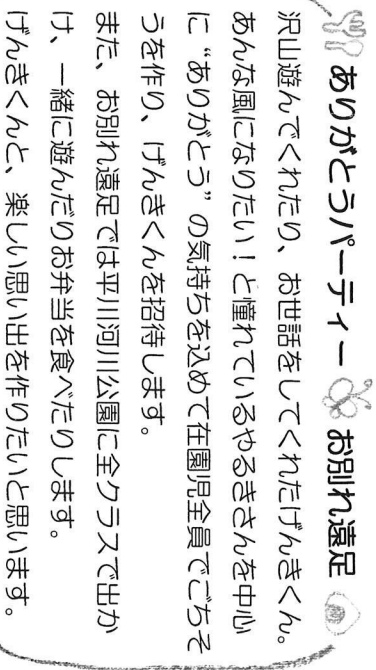 ありがとうパーティー お別れ遠足
沢山遊んでくれたり、お世話をしてくれたげんきくん。
あんな風になりたい！と憧れているやるきさんを中心
に“ありがとう”の気持ちを込めて在園児全員でごちそ
うを作り、げんきくんを招待します。
また、お別れ遠足では平川河川公園に全クラスで出か
け、一緒に遊んだりお弁当を食べたりします。
げんきくんと、楽しい思い出を作りたいと思います。